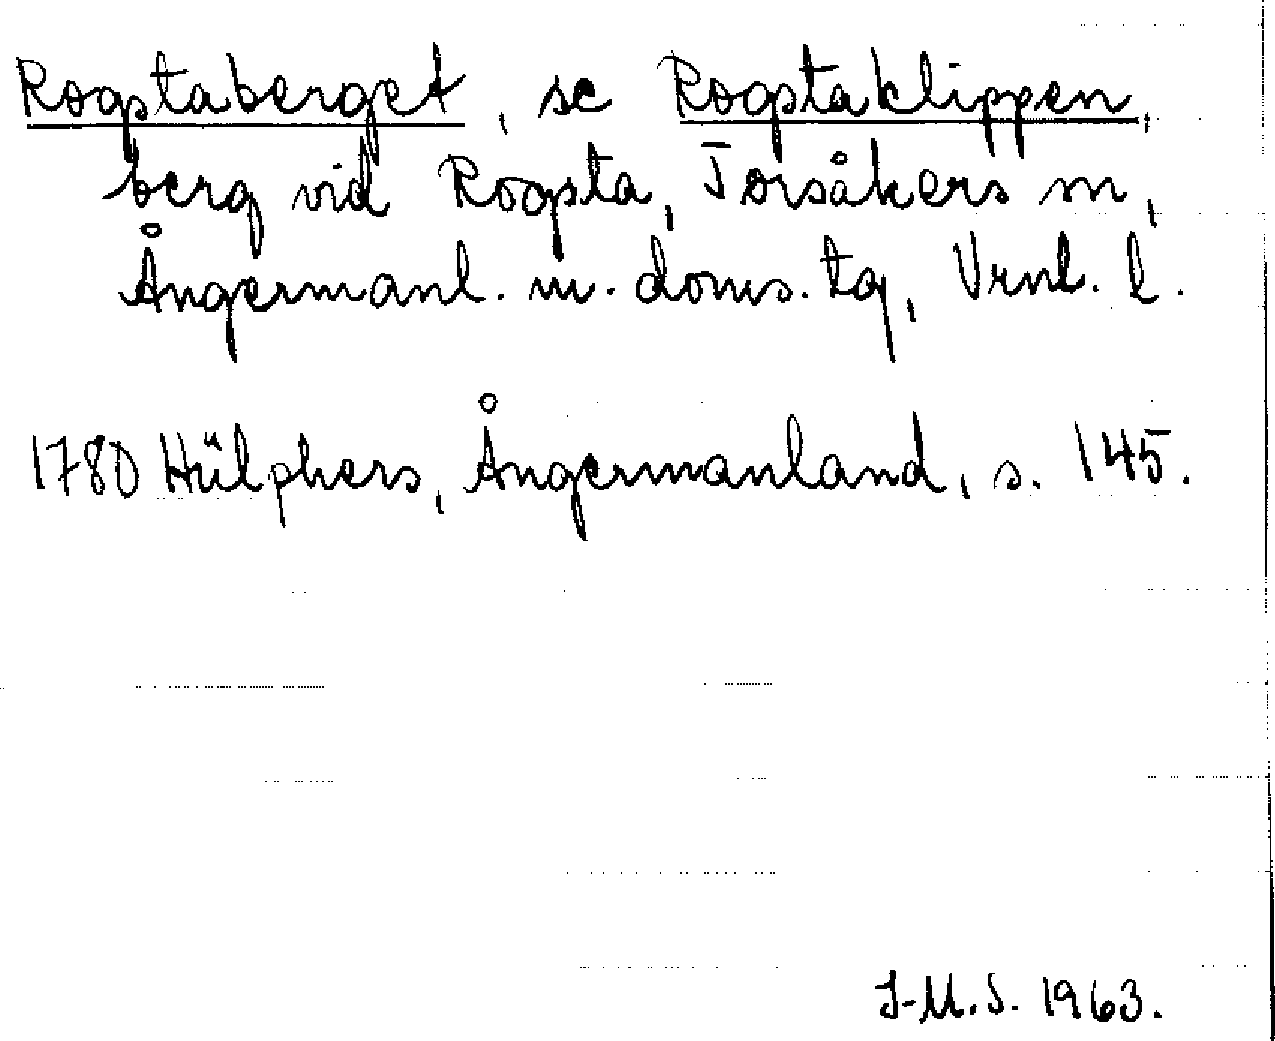 Rogstaberget, se Rogstaklippen,
berg vid Rogsta, Torsåkers sn,
Ångermanl. m. doms. tg, Vrnl. l.
1780 Hülphers, Ångermanland, s. 145.
J-M.S. 1963.